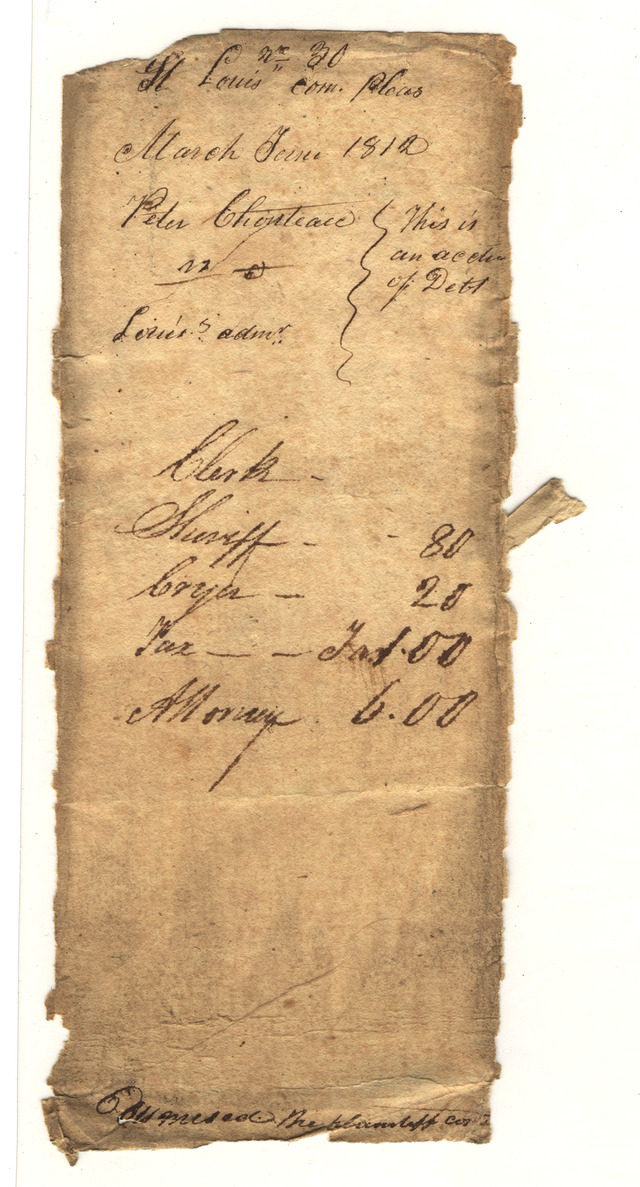 nr 30
St Louis com. Pleas
March Term 1812
Peter Chouteau
vs
Louis' admr.
This is
an accti
of Debt
Clerk -
Sheriff - - 80
Cryer - 20
Tax - - 1.00
Attorney 6.00
Dismissed the plaintiff cos